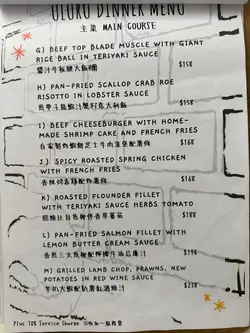 OLURU DINNER MENU
主菜 MAIN COURSE
G) BEEF TOP BLADE MUSCLE WITH GIANT
RICE BALL IN TERIYAKI SAUCE
$158
H) PAN-FRIED SCALLOP CRAB ROE
RISOTTO IN LOBSTER SAUCE
$158
I) BEEF CHEESEBURGER WITH HOME-
MADE SHRIMP CAKE AND FRENCH FRIES
$168
J) SPICY ROASTED SPRING CHICKEN
WITH FRENCH FRIES
$168
K) ROASTED FLOUNDER FILLET
WITH TERIYAKI SAUCE HERBS TOMATO
$188
L) PAN-FRIED SALMON FILLET WITH
LEMON BUTTER CREAM SAUCE
$198
M) GRILLED LAMB CHOP, PRAWNS, NEW
POTATOES IN RED WINE SAUCE
$238
Plus 10% Service Charge 另收加一服務費